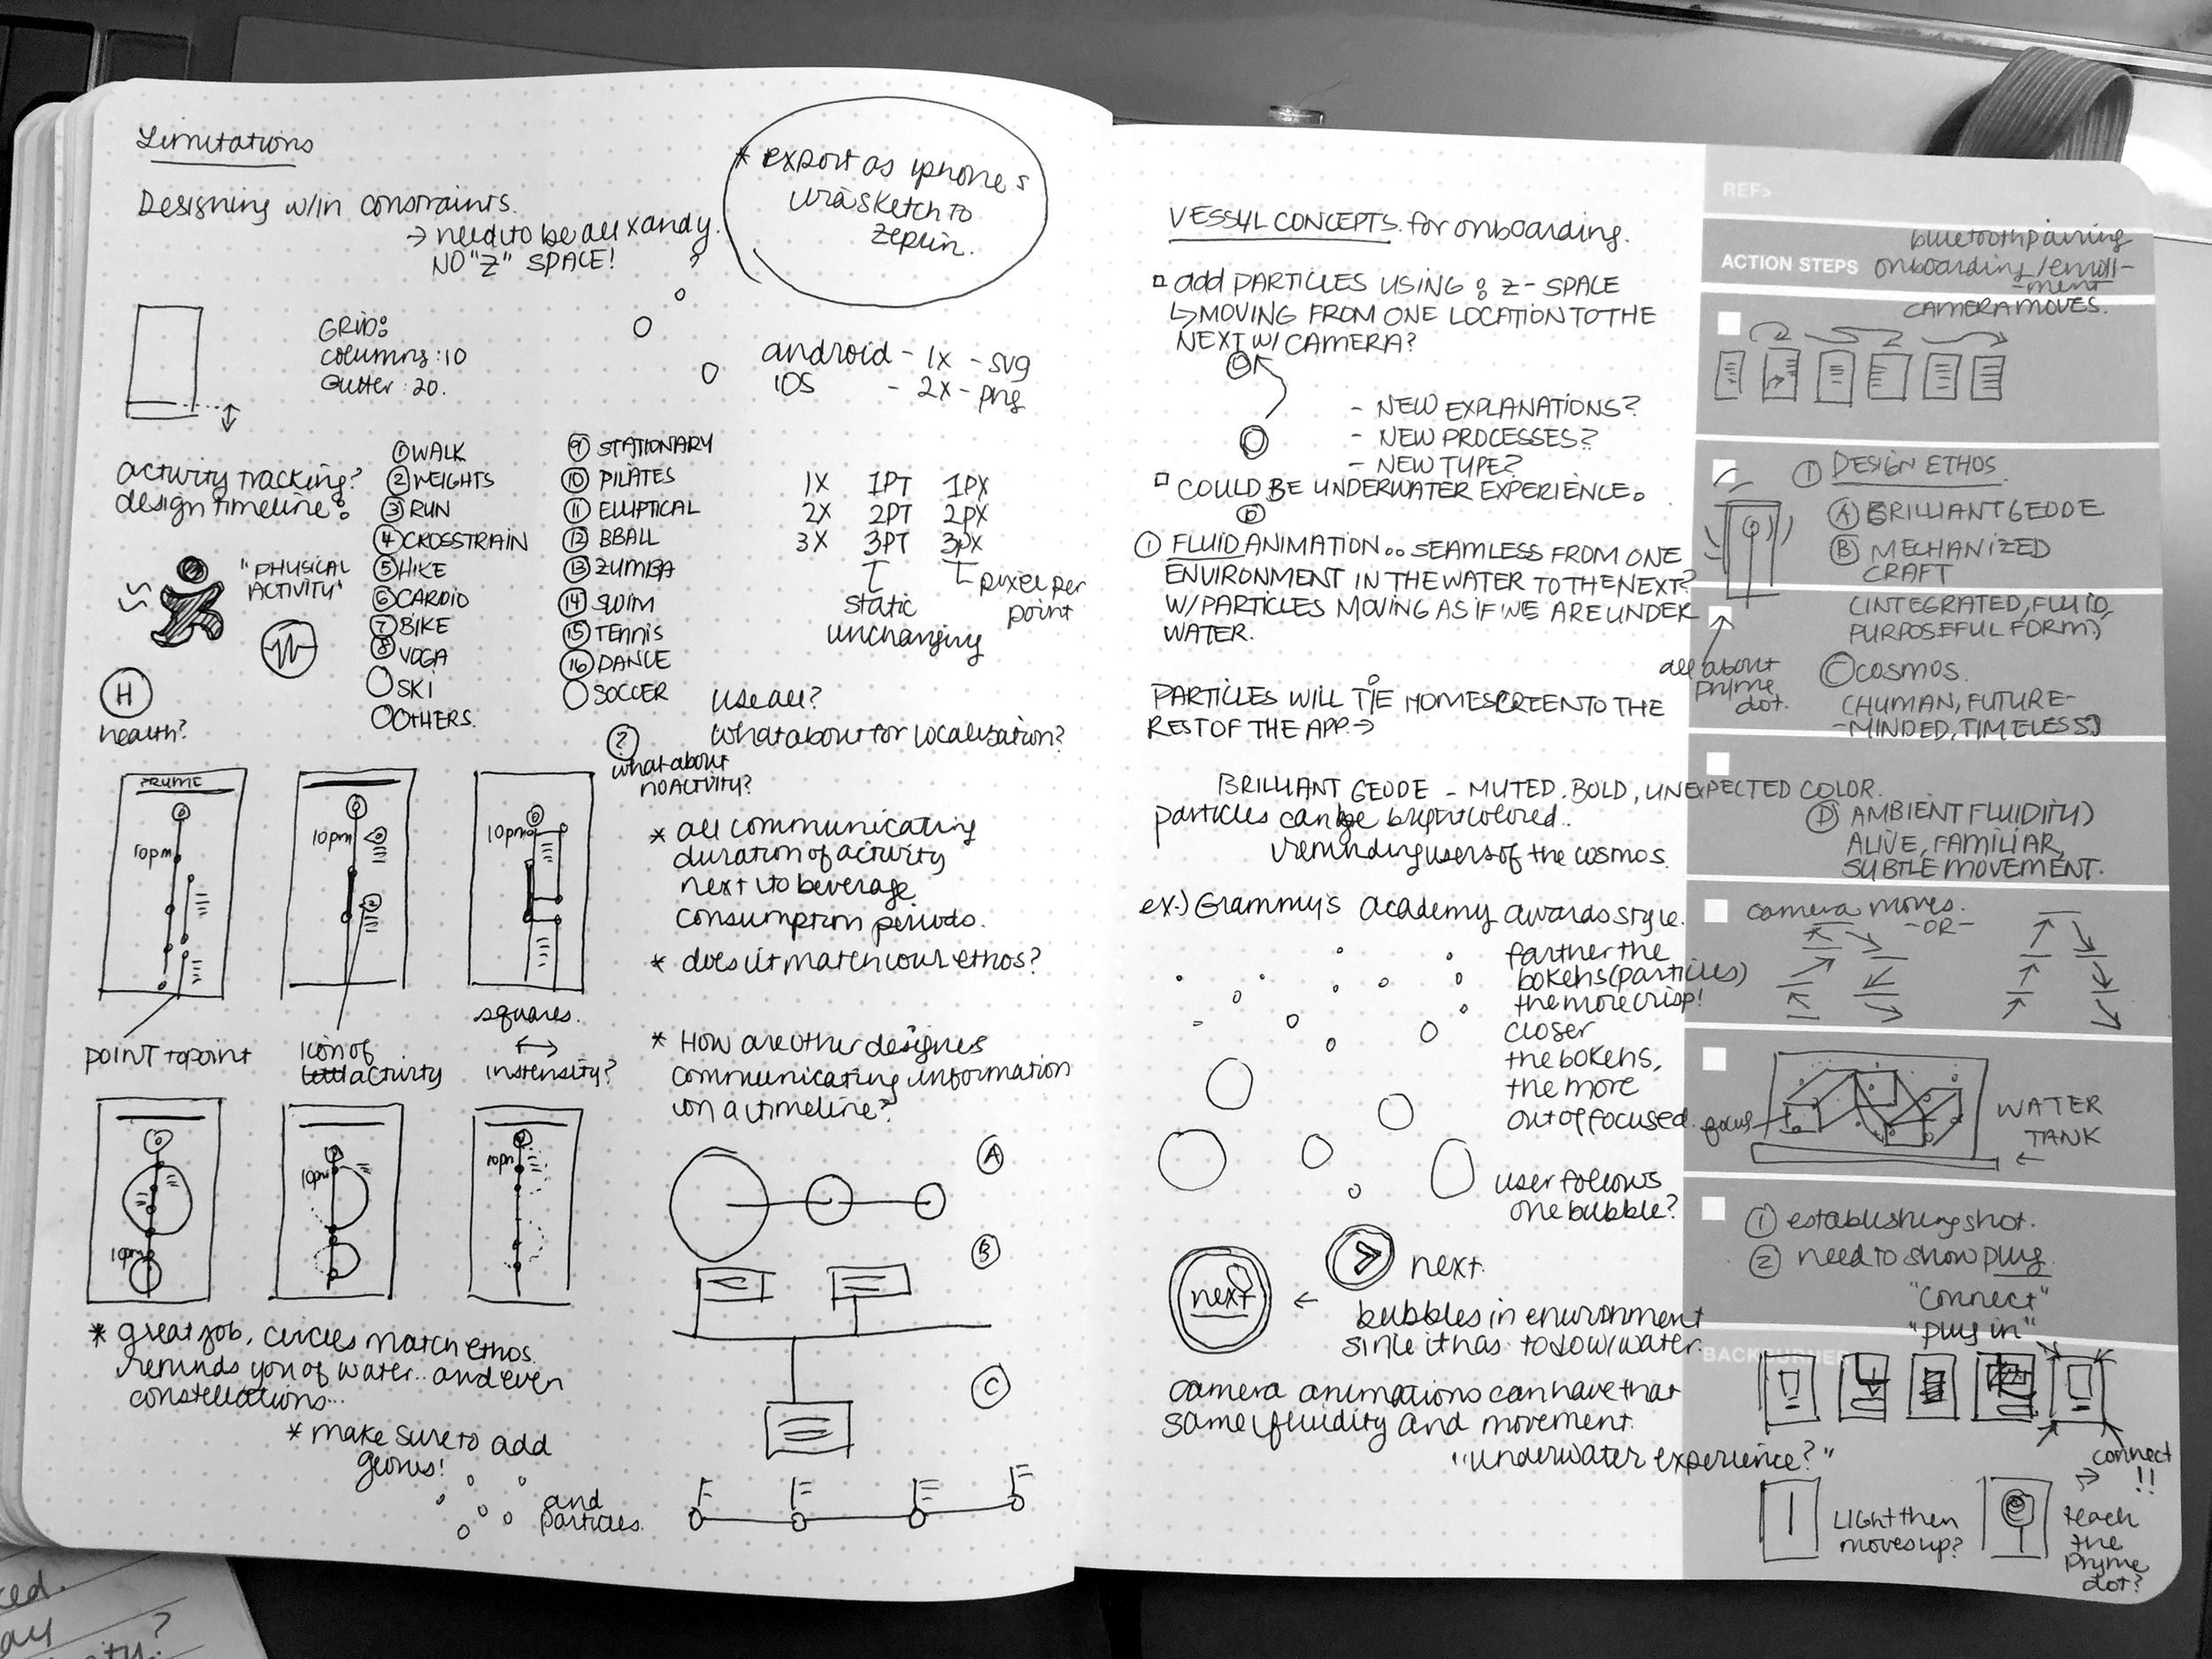 Limitations
Designing w/in constraints.
→ need to be all x and y.
NO "Z" SPACE!
* export as iphone 6
via sketch to
zeplin.
GRID:
columns: 10
Gutter: 20.
android - 1x - svg
iOS - 2x - png
activity tracking?
design timeline:
"PHYSICAL
ACTIVITY"
H
health?
① WALK
② WEIGHTS
③ RUN
④ CROSSTRAIN
⑤ HIKE
⑥ CARDIO
⑦ BIKE
⑧ YOGA
○ SKI
○ OTHERS.
⑨ STATIONARY
⑩ PILATES
⑪ ELLIPTICAL
⑫ BBALL
⑬ ZUMBA
⑭ SWIM
⑮ TENNIS
⑯ DANCE
○ SOCCER
1X 1PT 1PX
2X 2PT 2PX
3X 3PT 3PX
static
unchanging
pixel per
point
use all?
what about for localisation?
?
what about
no ACTIVITY?
PRYME
10pm
10pm
10pm
POINT to point
icon of
activity
squares.
↔
instensity?
* all communicating
duration of activity
next to beverage
consumption periods.
* does it match our ethos?
* How are other designs
communicating information
on a timeline?
10pm
10pm
10pm
A
B
C
* great job, circles match ethos.
reminds you of water.. and even
constellations...
* make sure to add
and
particles.
VESSYL CONCEPTS for onboarding.
□ add PARTICLES USING: Z-SPACE
↳ MOVING FROM ONE LOCATION TO THE
NEXT W/ CAMERA?
- NEW EXPLANATIONS?
- NEW PROCESSES?
- NEW TYPE?
□ COULD BE UNDERWATER EXPERIENCE.
① FLUID ANIMATION.. SEAMLESS FROM ONE
ENVIRONMENT IN THE WATER TO THE NEXT?
W/ PARTICLES MOVING AS IF WE ARE UNDER
WATER.
PARTICLES WILL TIE HOMESCREEN TO THE
REST OF THE APP. →
BRILLIANT GEODE - MUTED. BOLD, UNEXPECTED COLOR.
particles can be bright colored..
reminding users of the cosmos.
ex.) Grammy's academy awards style.
farther the
bokehs (particles)
the more crisp!
closer
the bokehs,
the more
out of focused.
user follows
one bubble?
next
next
← bubbles in environment
since it has to do w/ water.
camera animations can have that
same fluidity and movement.
"underwater experience?"
REFs
ACTION STEPS
bluetooth pairing
onboarding/enroll-
-ment
CAMERA MOVES.
all about
pryme
dot.
① DESIGN ETHOS
Ⓐ BRILLIANT GEODE
Ⓑ MECHANIZED
CRAFT
(INTEGRATED, FLUID,
PURPOSEFUL FORM)
Ⓒ COSMOS.
(HUMAN, FUTURE-
-MINDED, TIMELESS)
Ⓓ AMBIENT FLUIDITY)
ALIVE, FAMILIAR,
SUBTLE MOVEMENT.
camera moves.
-OR-
focus
WATER
TANK
① establishing shot.
② need to show plug
"connect"
"plug in"
BACKBURNER
connect
!!
LIGHT then
moves up?
teach
the
pryme
dot?